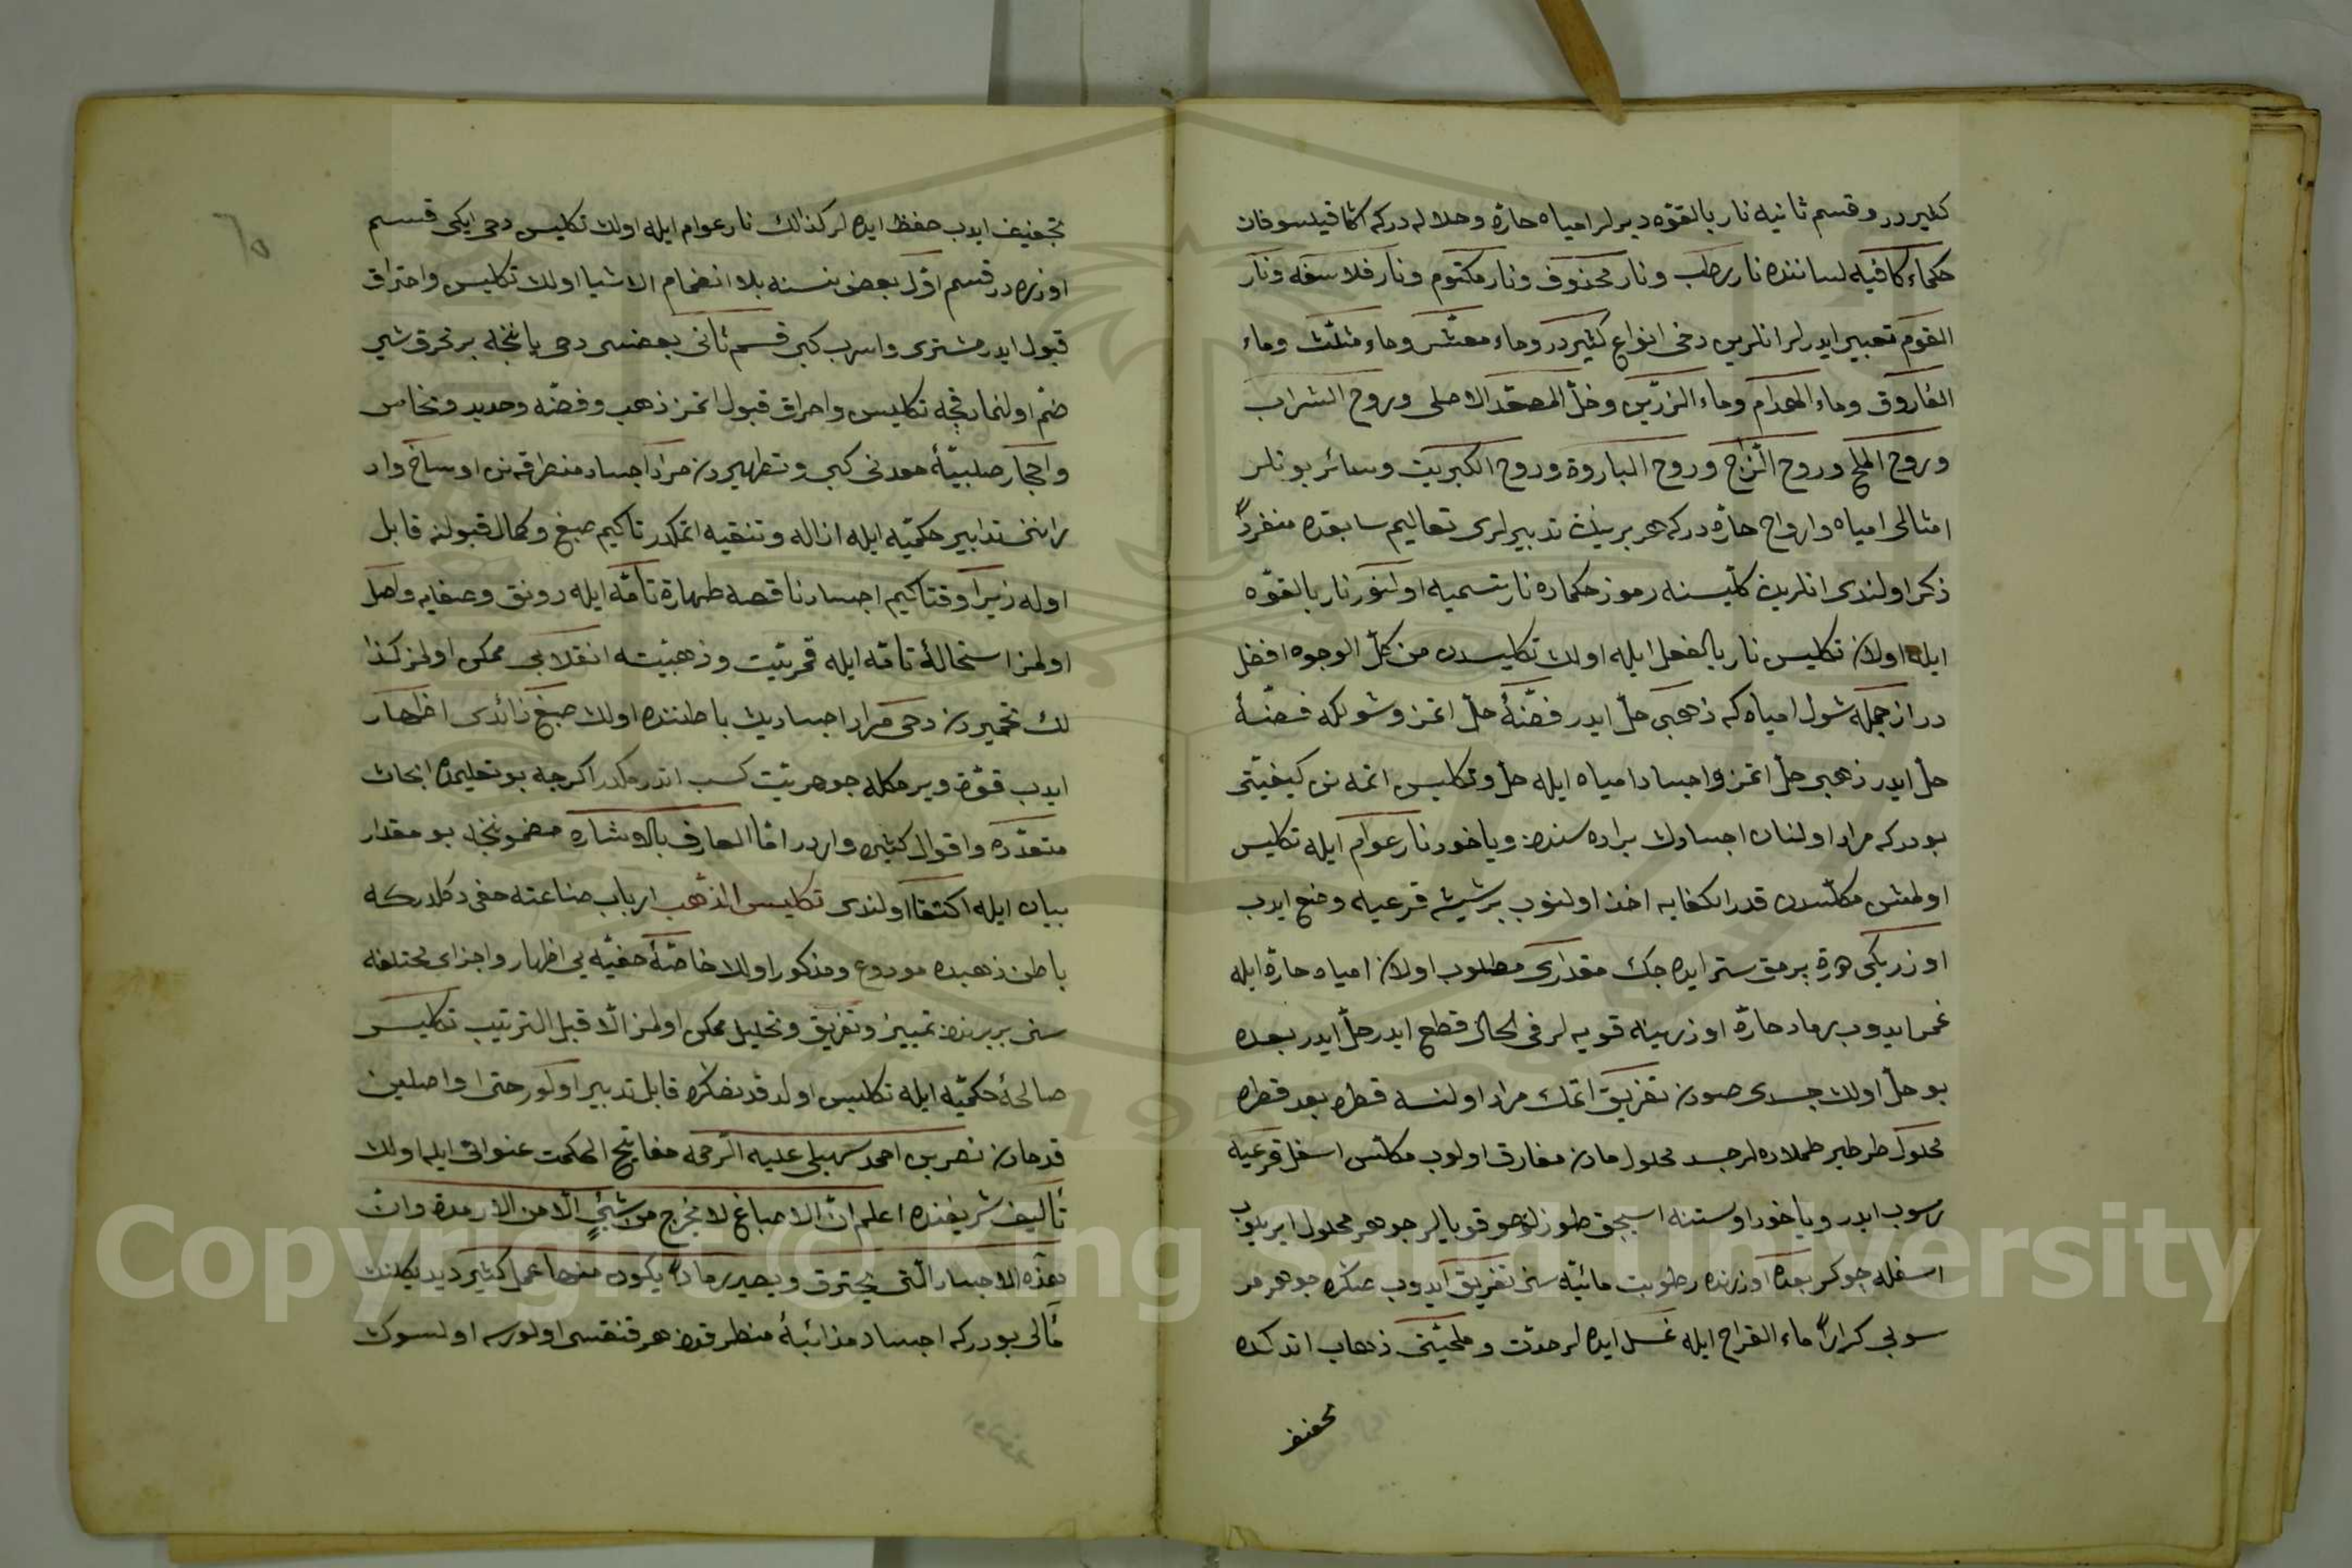 كلير در و قسم ثانيه نار بالقوّه ديرلر امياه حارّه و حلاله در كه اكا فيلسوفان
حكماء كافيه لساننده نار رطب و نار محذوف و نار مكتوم و نار فلاسفه و نار
القوم تعبير ايدرلر انلرين دخى انواع كثير در و ماء معشّر و ماء مثلّث و ماء
الفاروق و ماء الهدام و ماء الزرّين و خلّ المصعّد الاصلى و روح الشراب
و روح الملح و روح الزاج و روح الباروة و روح الكبريت و سائر بونلر
امثالى امياه و ارواح حارّه در كه هر برينك تدبيرلرى تعاليم سابقده منفرداً
ذكر اولندى انلرين كلّيسنه رموز حكماده نار تسميه اولنور نار بالقوّه
ايله اولان تكليس نار بالفعل ايله اولان تكليسدن من كلّ الوجوه افضل
در از جمله شول امياه كه ذهبى حلّ ايدر فضّهٔ حلّ اتمز و شونكه فضّهٔ
حلّ ايدر ذهبى حلّ اتمز و اجسادا مياه ايله حلّ و تكليس اتمه نن كيفيّتى
بودر كه مراد اولنان اجسادك براده سندن و ياخود نار عوام ايله تكليس
اولمش مكلّسدن قدر الكفايه اخذ اولنوب بر شيشه قرعيه وضع ايدب
اوزريكى هرة برمق ستر ايده جك مقدارى مطلوب اولان امياه حارّة ايله
غمر ايدوب رماد حارّة اوزرينه قويه لر فى الحال قطع ايدر حلّ ايدر بعده
بو حلّ اولان جسدى صودن تفريق اتمك مراد اولنسه قطره بعد قطره
محلول طرطير طملاده لر جسد محلول مادن مفارق اولوب مكلّس اسفل قرعيه
رسوب ايدر و ياخود اوستنه اسيجق طوزلو صو قويالر جوهر محلول ايريلوب
اسفله چوكر بعده اوزرنده رطوبت مائيّه سنى تفريق ايدوب صكره جوهر مر
سوبى كراراً ماء القراح ايله غسل ايده لر حدّت و ملحيّتى ذهاب اتدكده
تجفيف
تجفيف ايدب حفظ ايده لر كذالك نار عوام ايله اولان تكليس دخى ايكى قسم
اوزره در قسم اوّل بعض نسنه بلا انضمام الاشيا اولان تكليس و احتراق
قبول ايدر مشترى و اسرب كبى قسم ثانى بعضسى دخى يا ننجه بر محرق شى
ضمّ اولنمادقجه تكليس و احراق قبول اتمز ذهب و فضّه و حديد و نحاس
و احجار صلبيّهٔ معدنى كبى و تطهيردن مراد اجساد منطرقه نن اوساخ واد
راننى تدابير حكميّه ايله ازاله و تنقيه اتمكدر تاكيم صبغ و كمال قبولنه قابل
اوله زيرا وقتاكيم اجساد ناقصه طهارة تامّه ايله رونق و صفايه واصل
اولمز استحالهٔ تامّه ايله قمريّيت و ذهبيّته انقلابى ممكن اولمز كذا
لك تخميردن دخى مراد اجسادينك باطننده اولان صبغ زائدى اظهار
ايدب قوّة ويرمكله جوهريّيت كسب اتدرمكدر اكرجه بو تعليمده ابحاث
متعدّده و اقوال كثيره واردر امّا العارف بالاشاره مضموننجه بو مقدار
بيان ايله اكتفا اولندى تكليس الذّهب ارباب صناعته خفى دكلدر كه
باطن ذهبده مودوع و مذكور اولان خاصّهٔ خفيّه يى اظهار و اجزاى مختلفه
سنى بربرندن تمييز و تفريق و تحليل ممكن اولمز الّا قبل الترتيب تكليس
صالحهٔ حكميّه ايله تكليس اولدقدنصكره قابل تدبير اولور حتى او اصلين
قدمادن نصر بن احمد سهيلى عليه الرّحمه مفاتيح الحكمت عنوانى ايله اولان
تأليف شريفنده اعلم انّ الاصباغ لا تخرج من شئٍ الّا من الارمدة و انّ
هذه الاجساد الّتى تحترق و يصير رماداً يكون منها عمل كثير ديديكلنك
مآلى بودر كه اجساد مذائبهٔ منطرقدن هر قنقسى اولورسه اولسون